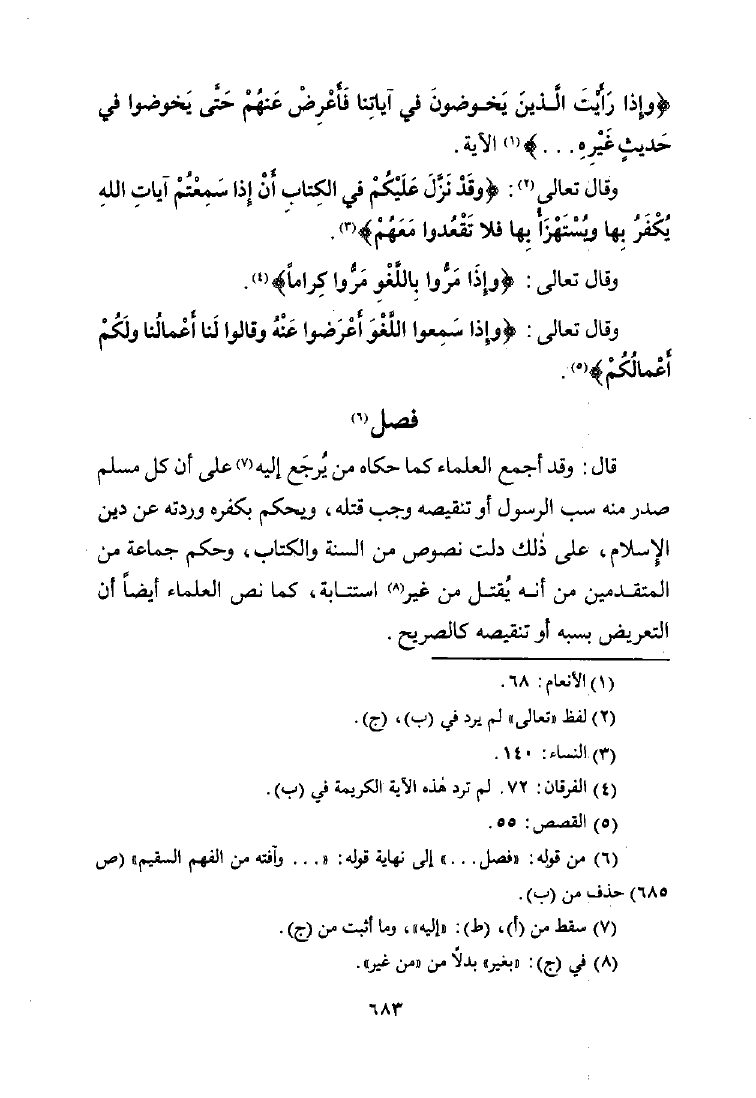 ﴿وإِذا رَأَيْتَ الَّـذينَ يَخـوضونَ في آياتِنا فَأَعْرِضْ عَنهُمْ حَتَّى يَخوضوا في
حَديثٍ غَيْرِهِ . . . ﴾(١) الآية .
وقال تعالى(٢) : ﴿وقَدْ نَزَّلَ عَلَيْكُمْ في الكِتابِ أَنْ إذا سَمِعْتُمْ آياتِ اللهِ
يُكْفَرُ بِها ويُسْتَهْزَأُ بِها فَلا تَقْعُدوا مَعَهُمْ﴾(٣) .
وقال تعالى : ﴿وإِذَا مَرُّوا بِاللَّغْوِ مَرُّوا كِراماً﴾(٤) .
وقال تعالى : ﴿وإِذا سَمِعوا اللَّغْوَ أَعْرَضوا عَنْهُ وقالوا لَنا أَعْمالُنا ولَكُمْ
أَعْمالُكُمْ﴾(٥) .
فصل(٦)
قال : وقد أجمع العلماء كما حكاه من يُرجَع إليه(٧) على أن كل مسلم
صدر منه سب الرسول أو تنقيصه وجب قتله ، ويحكم بكفره وردته عن دين
الإسلام ، على ذٰلك دلت نصوص من السنة والكتاب ، وحكم جماعة من
المتقـدمين من أنـه يُقتـل من غير(٨) استتـابة ، كما نص العلماء أيضاً أن
التعريض بسبه أو تنقيصه كالصريح .
(١) الأنعام : ٦٨ .
(٢) لفظ «تعالى» لم يرد في (ب) ، (ج) .
(٣) النساء : ١٤٠ .
(٤) الفرقان : ٧٢ . لم ترد هٰذه الآية الكريمة في (ب) .
(٥) القصص : ٥٥ .
(٦) من قوله : «فصل . . .» إلى نهاية قوله : « . . . وآفته من الفهم السقيم» (ص
٦٨٥) حذف من (ب) .
(٧) سقط من (أ) ، (ط) : «إليه» ، وما أثبت من (ج) .
(٨) في (ج) : «بغير» بدلاً من «من غير» .
٦٨٣